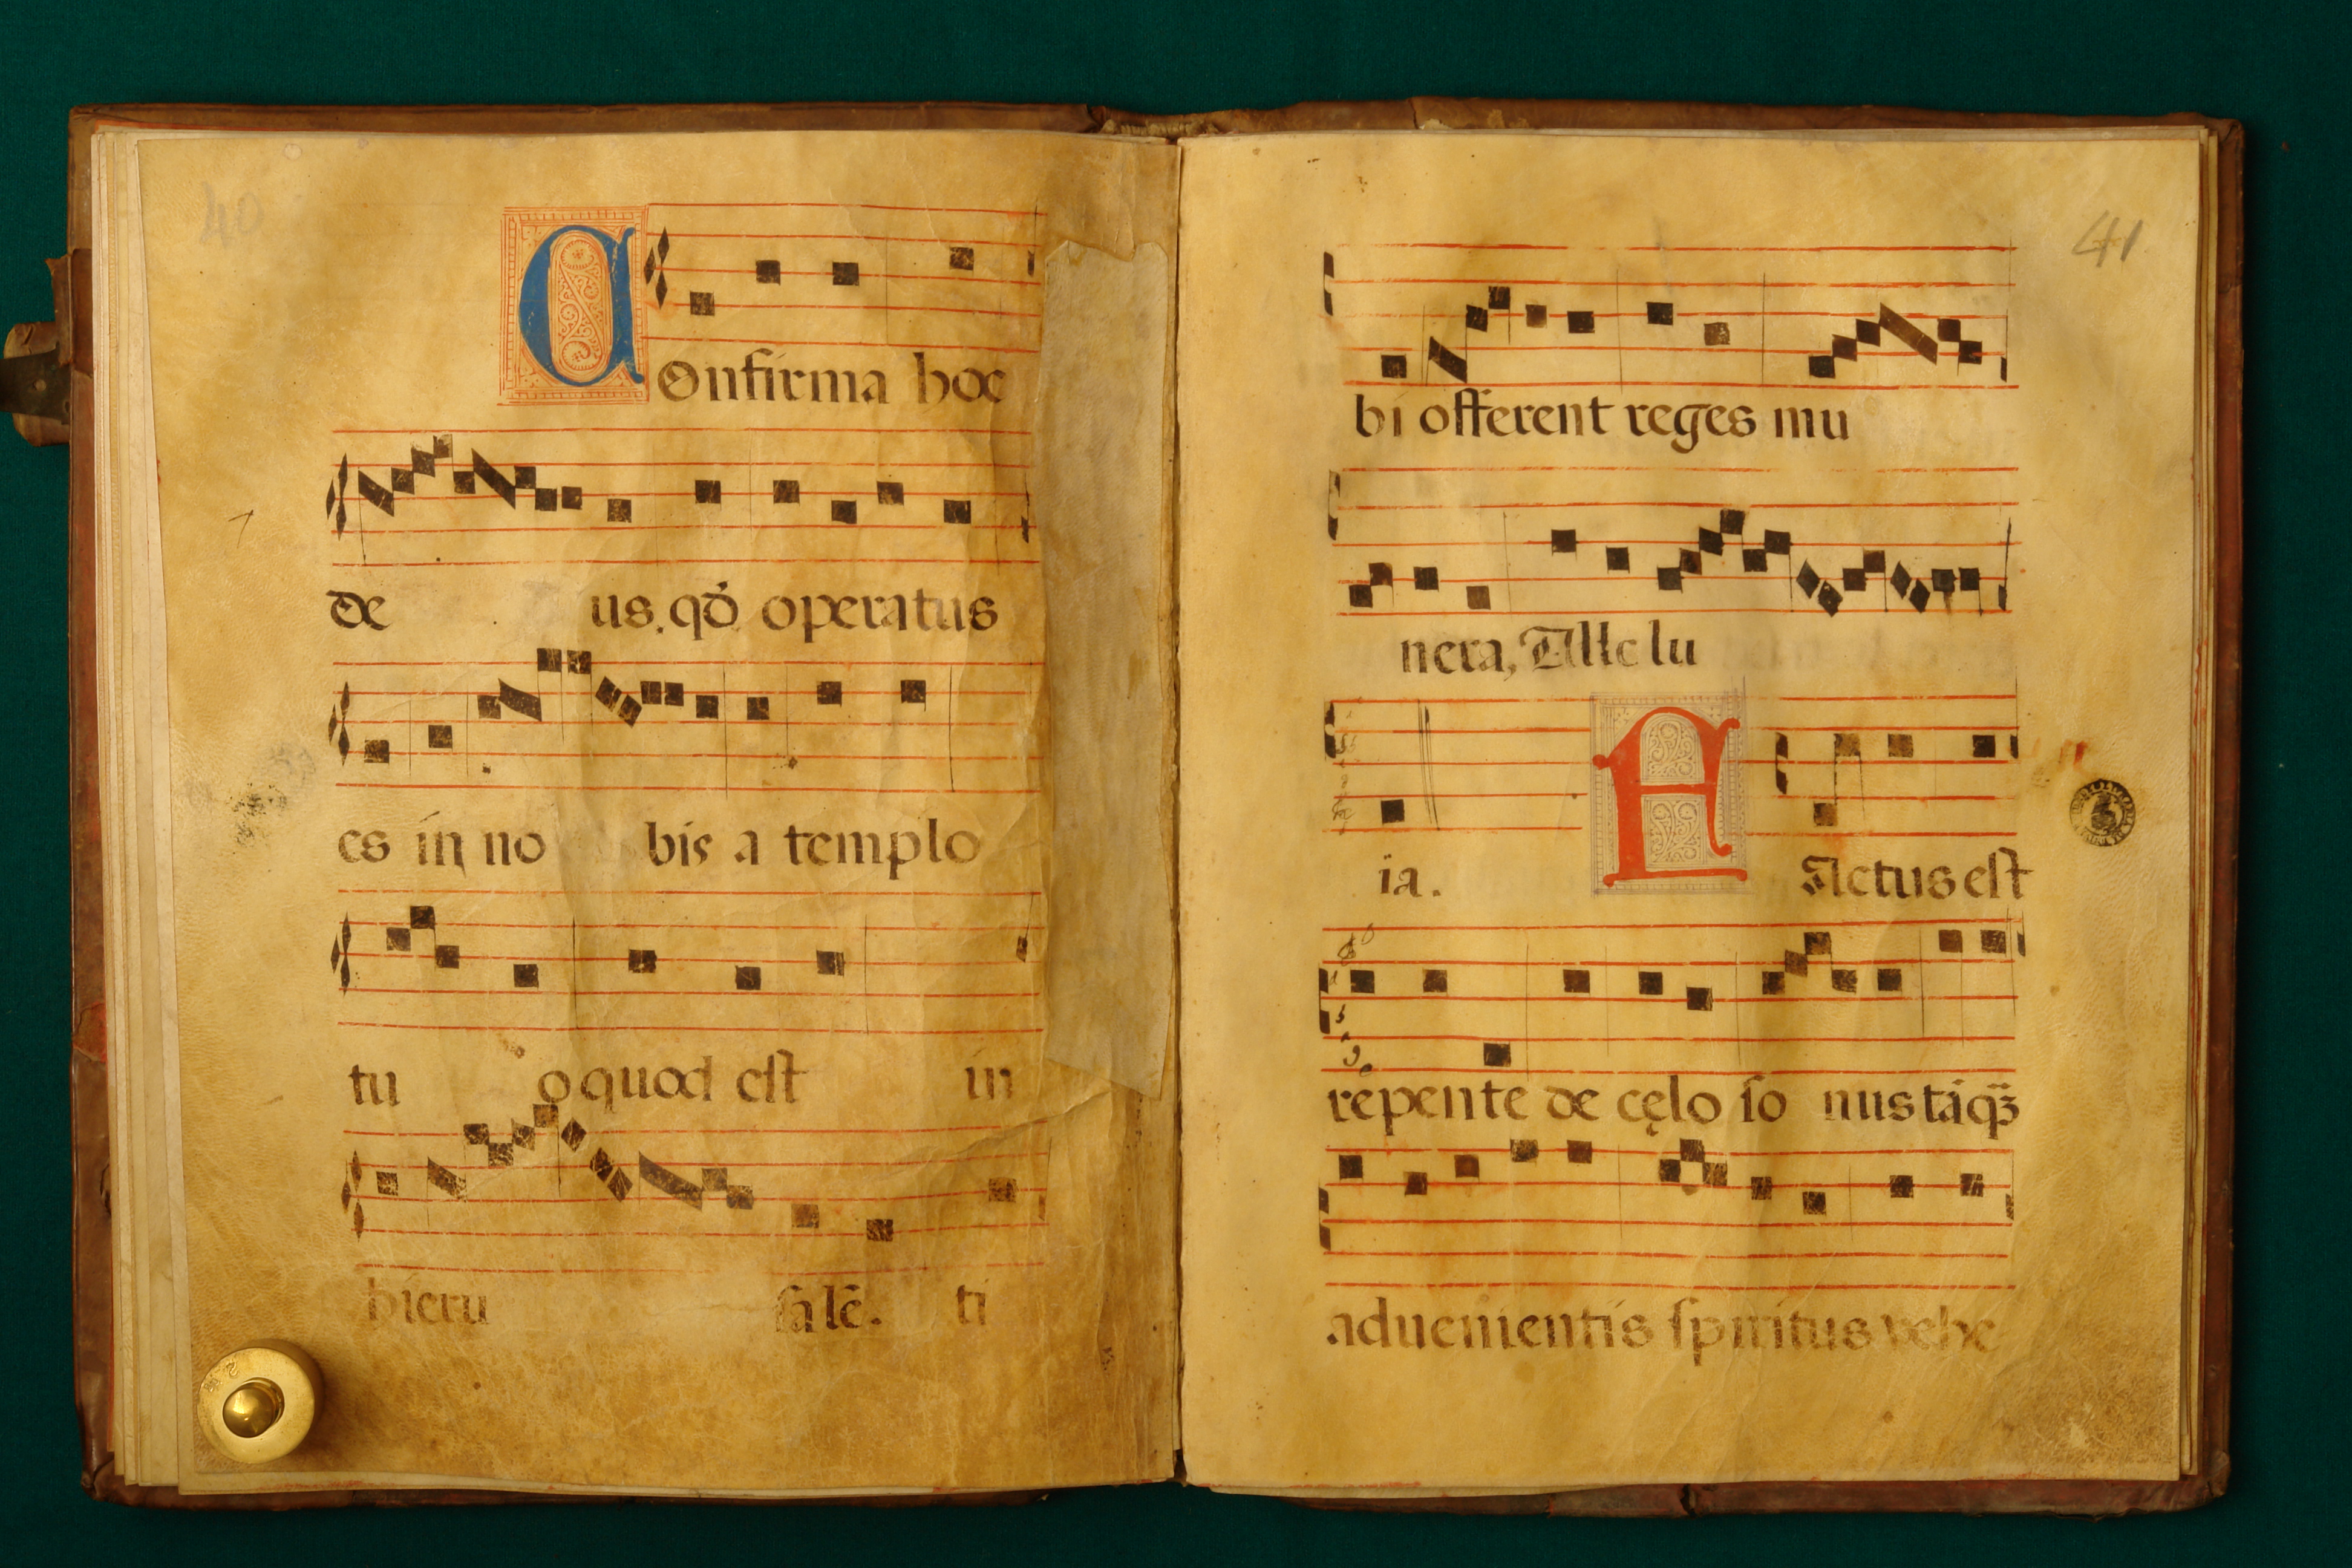 40
COnfirma hoc
de us. qđ operatus
es in no bis a templo
tu o quod eſt in
hieru ſalē. ti
41
bi offerent reges mu
nera, Alle lu
ia. FActus eſt
repente de cęlo ſo nus tāq̃
aduenientis ſpiritus vehe